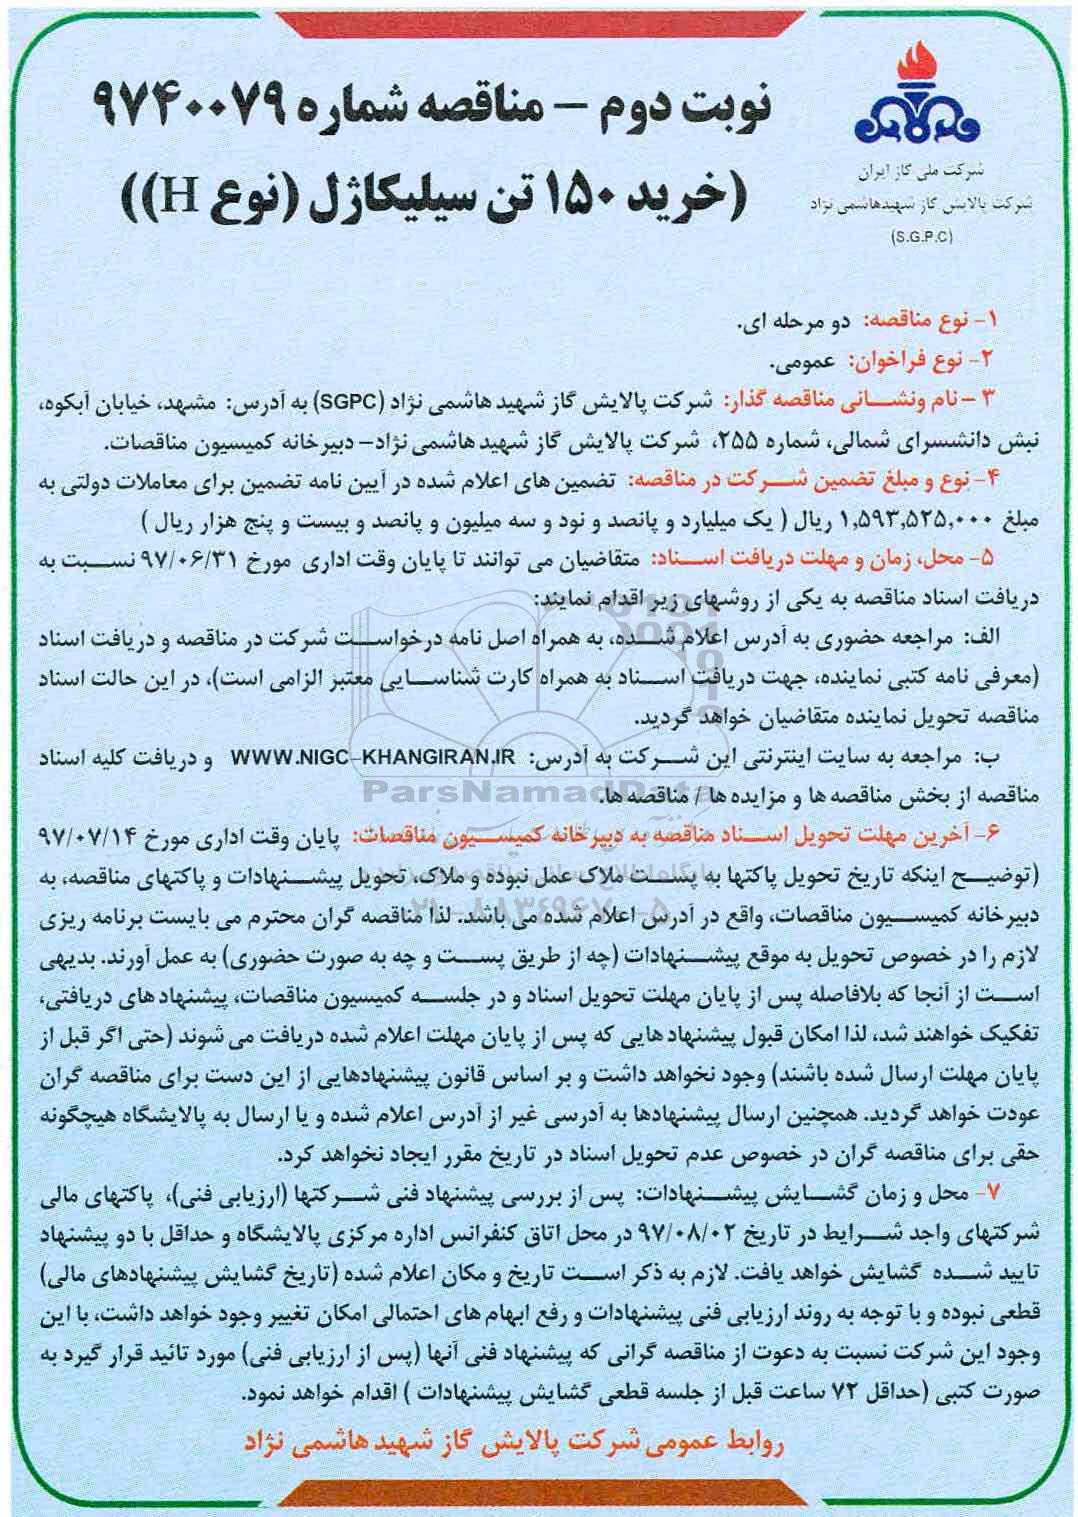 نوبت دوم – مناقصه شماره ۹۷۴۰۰۷۹
(خرید ۱۵۰ تن سیلیکاژل (نوع H))
شرکت ملی گاز ایران
شرکت پالایش گاز شهیدهاشمی نژاد
(S.G.P.C)
۱- نوع مناقصه: دو مرحله ای.
۲- نوع فراخوان: عمومی.
۳ – نام ونشـــانی مناقصه گذار: شرکت پالایش گاز شهید هاشمی نژاد (SGPC) به آدرس: مشهد، خیابان آبکوه،
نبش دانشسرای شمالی، شماره ۲۵۵، شرکت پالایش گاز شهید هاشمی نژاد– دبیرخانه کمیسیون مناقصات.
۴- نوع و مبلغ تضمین شـــرکت در مناقصه: تضمین های اعلام شده در آیین نامه تضمین برای معاملات دولتی به
مبلغ ۱,۵۹۳,۵۲۵,۰۰۰ ریال ( یک میلیارد و پانصد و نود و سه میلیون و پانصد و بیست و پنج هزار ریال )
۵- محل، زمان و مهلت دریافت اســـناد: متقاضیان می توانند تا پایان وقت اداری مورخ ۹۷/۰۶/۳۱ نســـبت به
دریافت اسناد مناقصه به یکی از روشهای زیر اقدام نمایند:
الف: مراجعه حضوری به آدرس اعلام شـــده، به همراه اصل نامه درخواســـت شرکت در مناقصه و دریافت اسناد
(معرفی نامه کتبی نماینده، جهت دریافت اســـناد به همراه کارت شناســـایی معتبر الزامی است)، در این حالت اسناد
مناقصه تحویل نماینده متقاضیان خواهد گردید.
ب: مراجعه به سایت اینترنتی این شـــرکت به آدرس: WWW.NIGC-KHANGIRAN.IR و دریافت کلیه اسناد
مناقصه از بخش مناقصه ها و مزایده ها / مناقصه ها.
ParsNamadData
۶- آخرین مهلت تحویل اســـناد مناقصه به دبیرخانه کمیســـیون مناقصات: پایان وقت اداری مورخ ۹۷/۰۷/۱۴
(توضیـــح اینکه تاریخ تحویل پاکتها به پســـت ملاک عمل نبوده و ملاک، تحویل پیشـــنهادات و پاکتهای مناقصه، به
دبیرخانه کمیســـیون مناقصات، واقع در آدرس اعلام شده می باشد. لذا مناقصه گران محترم می بایست برنامه ریزی
۰۲۱-۸۸۳۴۹۶۷۰-۵
لازم را در خصوص تحویل به موقع پیشـــنهادات (چه از طریق پســـت و چه به صورت حضوری) به عمل آورند. بدیهی
اســـت از آنجا که بلافاصله پس از پایان مهلت تحویل اسناد و در جلســـه کمیسیون مناقصات، پیشنهاد های دریافتی،
تفکیک خواهند شد، لذا امکان قبول پیشنهاد هایی که پس از پایان مهلت اعلام شده دریافت می شوند (حتی اگر قبل از
پایان مهلت ارسال شده باشند) وجود نخواهد داشت و بر اساس قانون پیشنهادهایی از این دست برای مناقصه گران
عودت خواهد گردید. همچنین ارسال پیشنهادها به آدرسی غیر از آدرس اعلام شده و یا ارسال به پالایشگاه هیچگونه
حقی برای مناقصه گران در خصوص عدم تحویل اسناد در تاریخ مقرر ایجاد نخواهد کرد.
۷- محل و زمان گشـــایش پیشـــنهادات: پس از بررسی پیشنهاد فنی شـــرکتها (ارزیابی فنی)، پاکتهای مالی
شرکتهای واجد شـــرایط در تاریخ ۹۷/۰۸/۰۲ در محل اتاق کنفرانس اداره مرکزی پالایشگاه و حداقل با دو پیشنهاد
تایید شـــده گشایش خواهد یافت. لازم به ذکر اســـت تاریخ و مکان اعلام شده (تاریخ گشایش پیشنهادهای مالی)
قطعی نبوده و با توجه به روند ارزیابی فنی پیشنهادات و رفع ابهام های احتمالی امکان تغییر وجود خواهد داشت، با این
وجود این شرکت نسبت به دعوت از مناقصه گرانی که پیشنهاد فنی آنها (پس از ارزیابی فنی) مورد تائید قرار گیرد به
صورت کتبی (حداقل ۷۲ ساعت قبل از جلسه قطعی گشایش پیشنهادات ) اقدام خواهد نمود.
روابط عمومی شرکت پالایش گاز شهید هاشمی نژاد